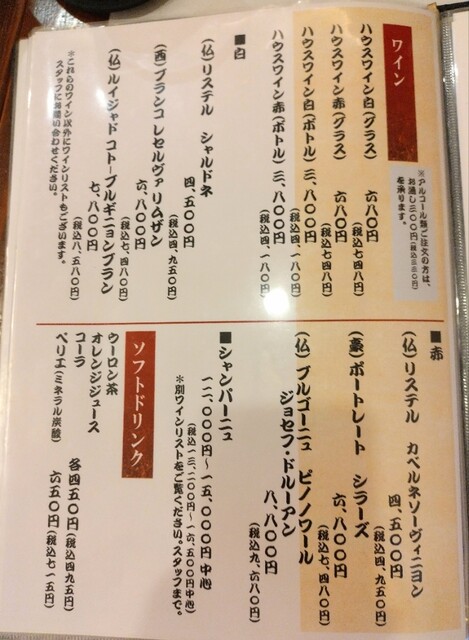 ワイン
※アルコール類ご注文の方は、
お通し三〇〇円(税込三三〇円)
を承ります。
ハウスワイン白(グラス) 六八〇円
(税込七四八円)
ハウスワイン赤(グラス) 六八〇円
(税込七四八円)
ハウスワイン白(ボトル) 三、八〇〇円
(税込四、一八〇円)
ハウスワイン赤(ボトル) 三、八〇〇円
(税込四、一八〇円)
■白
(仏)リステル シャルドネ
四、五〇〇円
(税込四、九五〇円)
(西)ブランコ レセルヴァ リムザン
六、八〇〇円
(税込七、四八〇円)
(仏)ルイジャド コトーブルギニヨンブラン
七、八〇〇円
(税込八、五八〇円)
※これらのワイン以外にワインリストもございます。
スタッフにお問い合わせください。
■赤
(仏)リステル カベルネソーヴィニヨン
四、五〇〇円
(税込四、九五〇円)
(豪)ポートレート シラーズ
六、八〇〇円
(税込七、四八〇円)
(仏)ブルゴーニュ ピノノワール
ジョセフ・ドルーアン
八、八〇〇円
(税込九、六八〇円)
■シャンパーニュ
一二、〇〇〇円〜一五、〇〇〇円 中心
(税込一三、二〇〇円〜一六、五〇〇円中心)
※別ワインリストをご覧ください。スタッフまで。
ソフトドリンク
ウーロン茶
オレンジジュース
コーラ
各四五〇円(税込四九五円)
ペリエ(ミネラル炭酸) 六五〇円(税込七一五円)